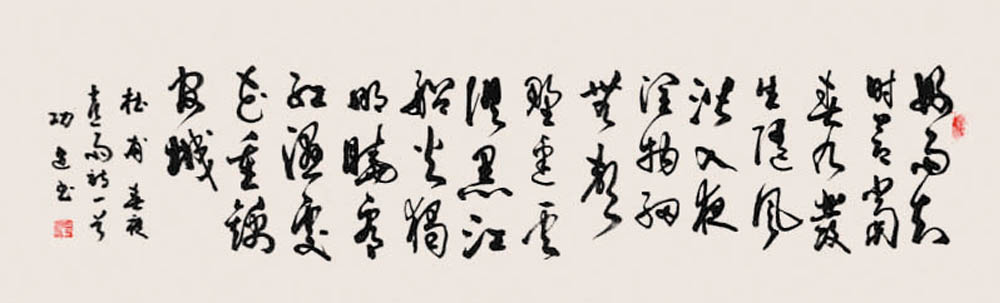 好雨知
时节當
春乃發
生随风
潜入夜
润物细
無聲
野径云
俱黑江
船火獨
明曉看
红濕處
花重錦
官城
杜甫春夜
喜雨诗一首
功书